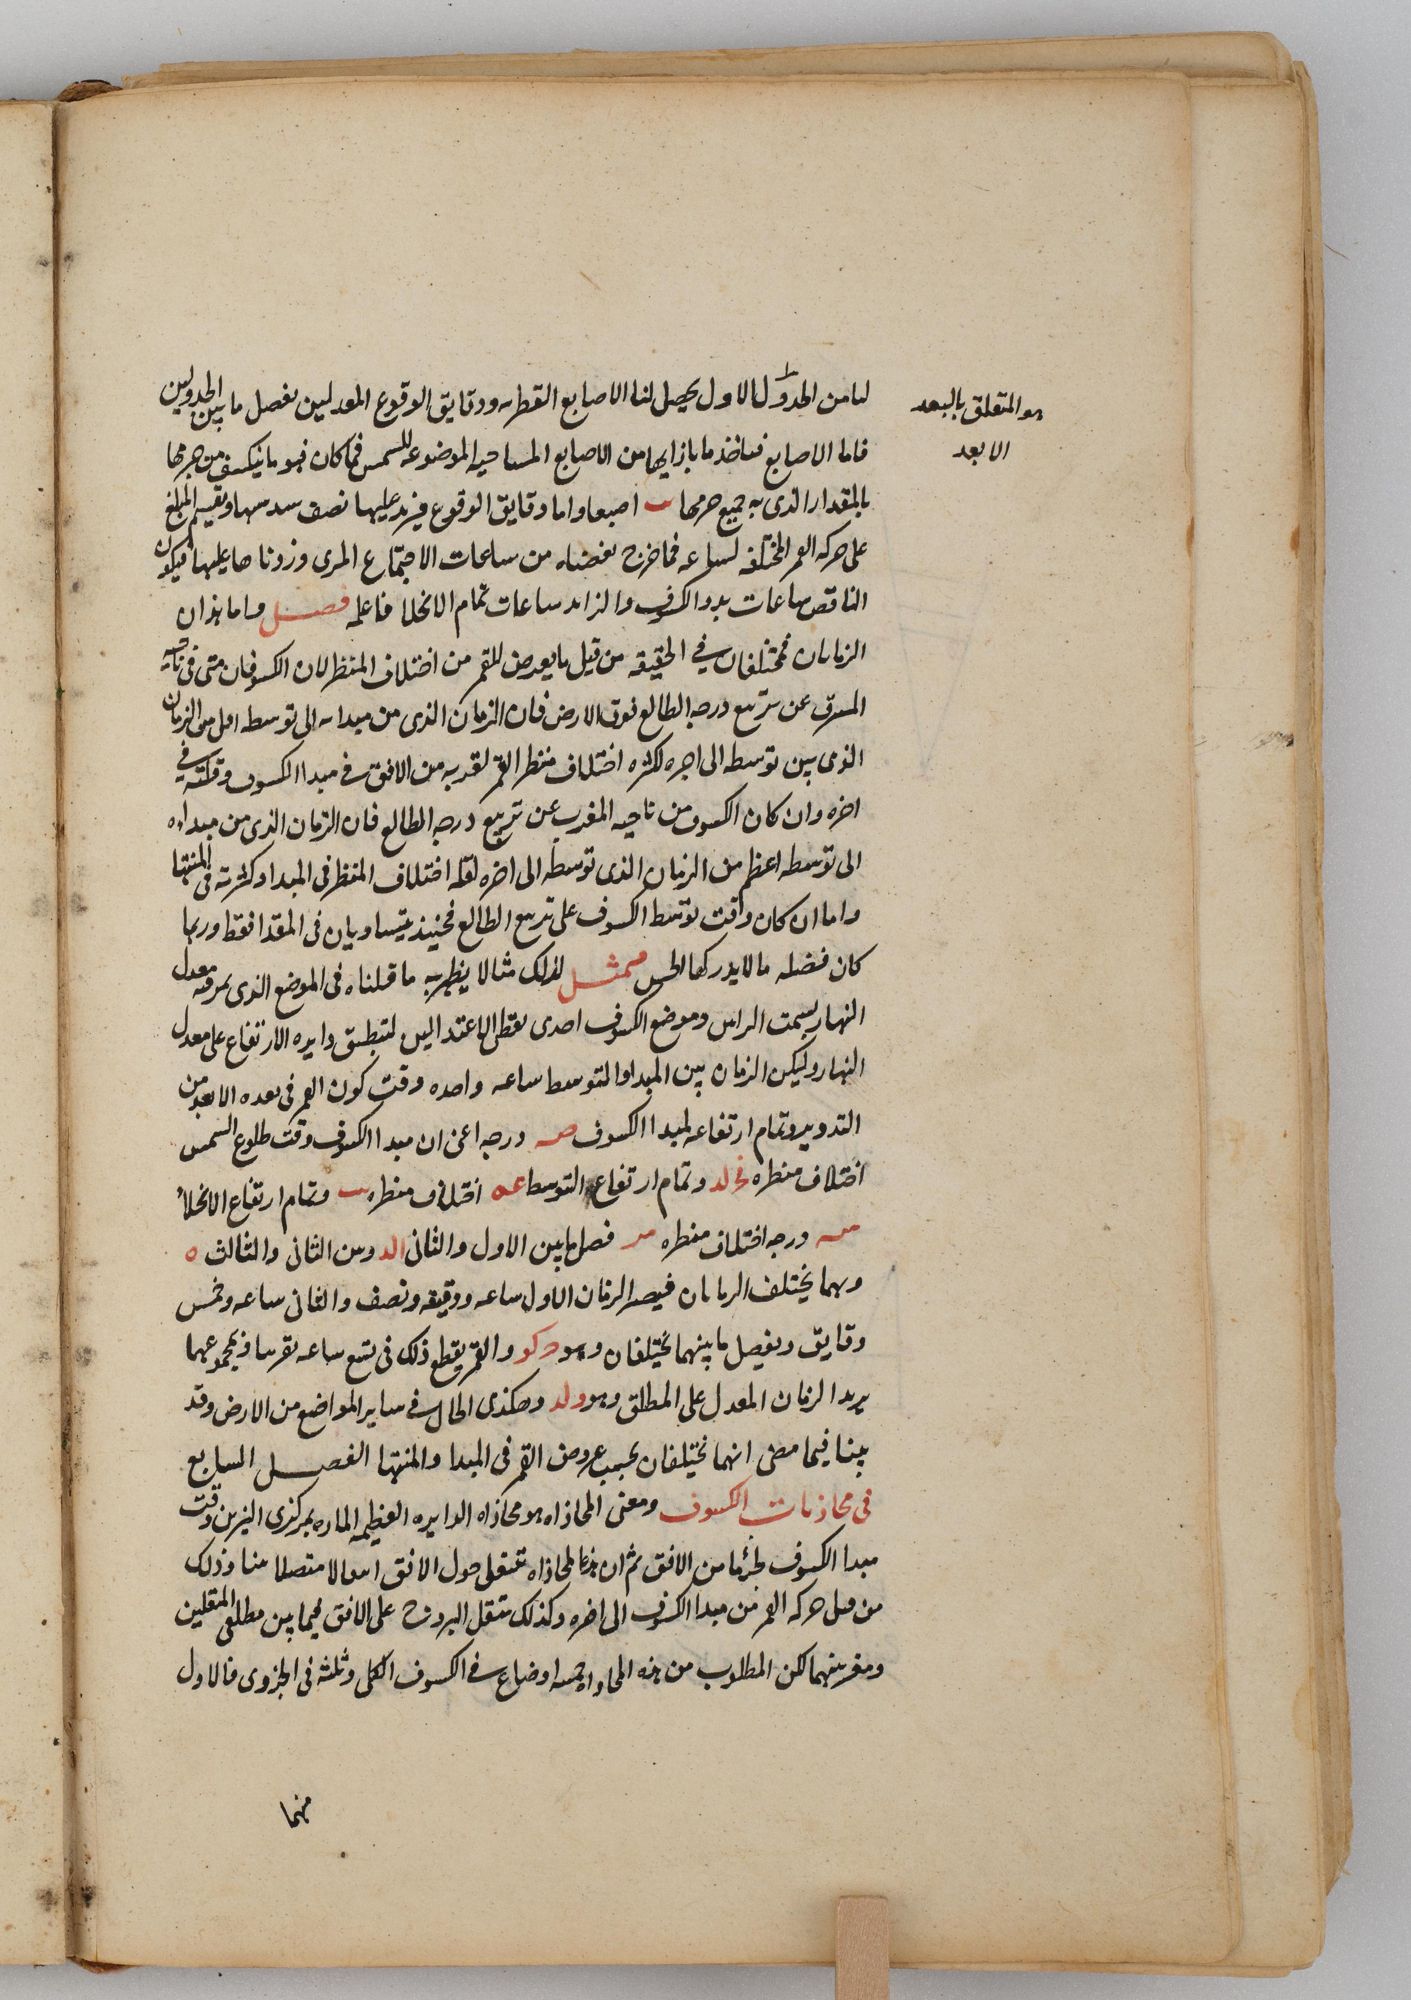 لنا من الجدول الاول يحصل لنا الاصابع القطريه ودقايق الوقوع المعدلين بفصل ما بين الجدولين
هو المتعلق بالبعد
الابعد
فاما الاصابع فناخذ ما بازايها من الاصابع المساحيه الموضوعه للشمس فما كان فهو ما ينكسف من جرمها
بالمقدار الذى به جميع جرمها يب اصبعا واما دقايق الوقوع فيزيد عليها نصف سدسها ويقسم المبلغ
على حركه القمر المختلفه لساعه فما خرج نقصناه من ساعات الاجتماع المرى وزدناها عليها فيكون
الناقص ساعات بدو الكسوف والزايد ساعات تمام الانجلا فاعلمه فصل واما هذان
الزمانان فمختلفان في الحقيقه من قبل ما يعرض للقمر من اختلاف المنظر لان الكسوف ان متى فى ناحيه
المشرق عن تربيع درجه الطالع فوق الارض فان الزمان الذى من مبدايه الى توسطه اقل من الزمان
الذى بين توسطه الى اخره لكثره اختلاف منظر القمر لقربه من الافق في مبدا الكسوف وقلته في
اخره وان كان الكسوف من ناحيه المغرب عن تربيع درجه الطالع فان الزمان الذى من مبداه
الى توسطه اعظم من الزمان الذى توسطه الى اخره لقله اختلاف المنظر فى المبدا وكثرته فى المنتها
واما ان كان وقت توسط الكسوف على تربيع الطالع فحينيذ يتساويان فى المقدا فقط وربما
كان فضله مالا يدركها الحس ممثل لذلك مثالا يظهر به ما قلناه فى الموضع الذى يمر فيه معدل
النهار بسمت الراس وموضع الكسوف احدى نقطى الاعتدالين لتنطبق دايره الارتفاع على معدل
النهار وليكن الزمان بين المبدا والتوسط ساعه واحده وقت كون القمر فى بعده الابعد من
التدوير وتمام ارتفاعه لمبدا الكسوف صه درجه اعنى ان مبدا الكسوف وقت طلوع الشمس
اختلاف منظره نح لد وتمام ارتفاع التوسط عه اختلاف منظره وتمام ارتفاع الانجلا
درجه اختلاف منظره فصل ما بين الاول والثانى الد وبين الثانى والثالث ه
وبهما يختلف الزمانان فيصير الزمان الاول ساعه ودقيقه ونصف والثانى ساعه وخمس
دقايق وبفصل ما بينهما يختلفان وهو د كو والقمر يقطع ذلك فى تسع ساعه تقريبا فبمجموعهما
يزيد الزمان المعدل على المطلق وهو ولد وهكذى الحال في ساير المواضع من الارض وقد
بينا فيما مضى انهما يختلفان بحسب عروض القمر فى المبدا والمنتها الفصل السابع
فى محاذيات الكسوف ومعنى المحاذاه هو محاذاه الدايره العظيمه الماره بمركزى النيرين وقت
مبدا الكسوف لجزء ما من الافق ثم ان هذا المحاذاه تنتقل حول الافق انتقالا متصلا متنا وذلك
من قبل حركه القمر من مبدا الكسوف الى اخره وكذلك تنتقل البروج على الافق فيما بين مطلعى المنقلبين
ومغربيهما لكن المطلوب من هذه المحاذاه خمسه اوضاع في الكسوف الكلى وثلثه فى الجزوى فالاول
منها